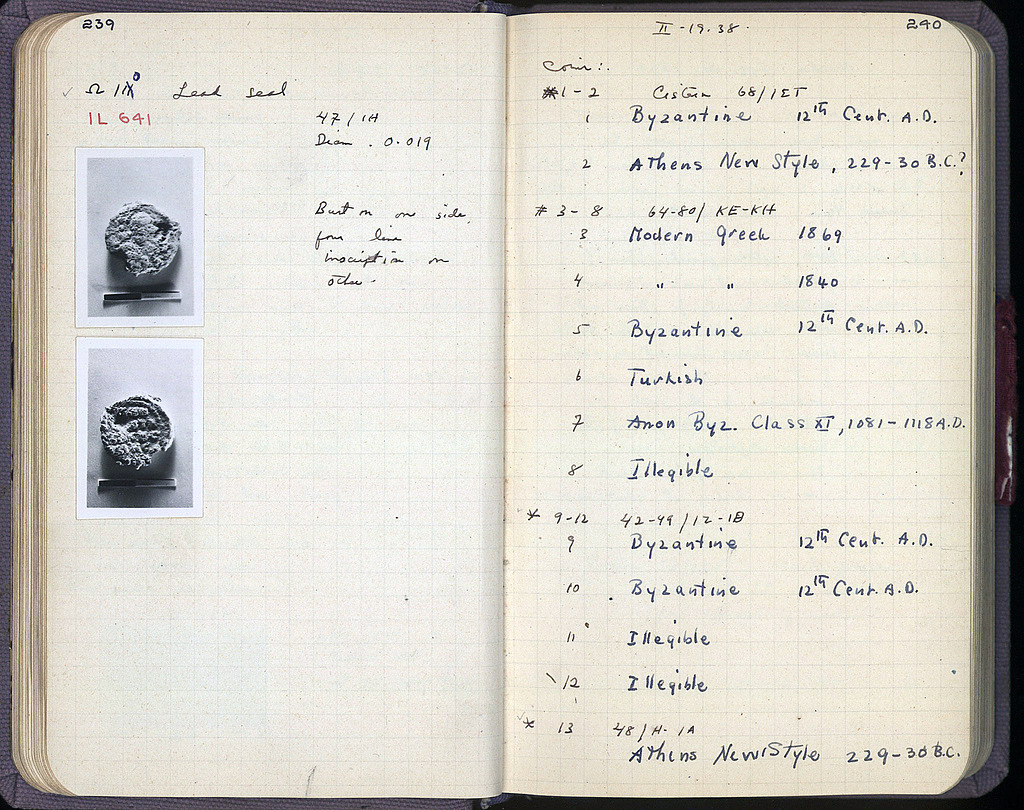 239
Lead seal
IL 641
47/ΙΗ
Diam. 0.019
Bust on one side,
four line
inscription on
other.
240
II-19.38.
Coins:
#1-2 Cistern 68/ΙΣΤ
1 Byzantine 12th Cent. A.D.
2 Athens New Style, 229-30 B.C.?
#3-8 64-80/ΚΕ-ΚΗ
3 Modern Greek 1869
4 " " 1840
5 Byzantine 12th Cent. A.D.
6 Turkish
7 Anon Byz. Class XI, 1081-1118 A.D.
8 Illegible
* 9-12 42-49/12-
9 Byzantine 12th Cent. A.D.
10 Byzantine 12th Cent. A.D.
11 Illegible
12 Illegible
* 13 48/Η-ΙΑ
Athens New Style 229-30 B.C.